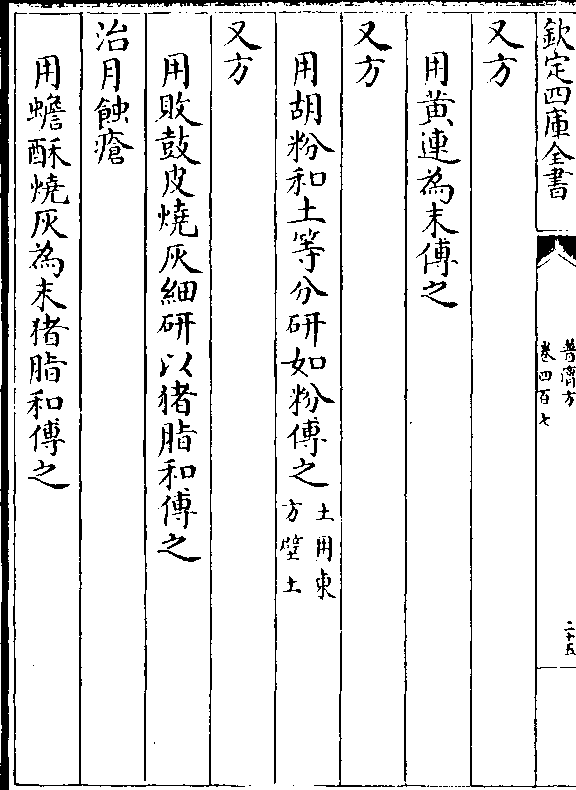 欽定四庫全書
普濟方
卷四百七
二十五
又方
用黃連為末傅之
又方
用胡粉和土等分研如粉傅之
土用東
方壁土
又方
用敗鼓皮燒灰細研以猪脂和傅之
治月蝕瘡
用蟾酥燒灰為末猪脂和傅之